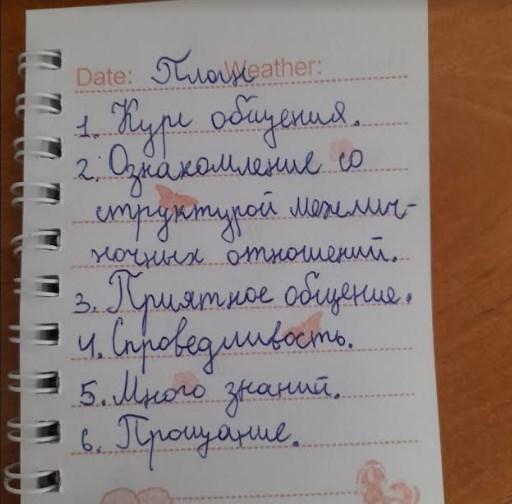 Date: План Weather:
1. Курс общения.
2. Ознакомление со
структурой межлич-
ночных отношений.
3. Приятное общение.
4. Справедливость.
5. Много знаний.
6. Прощание.